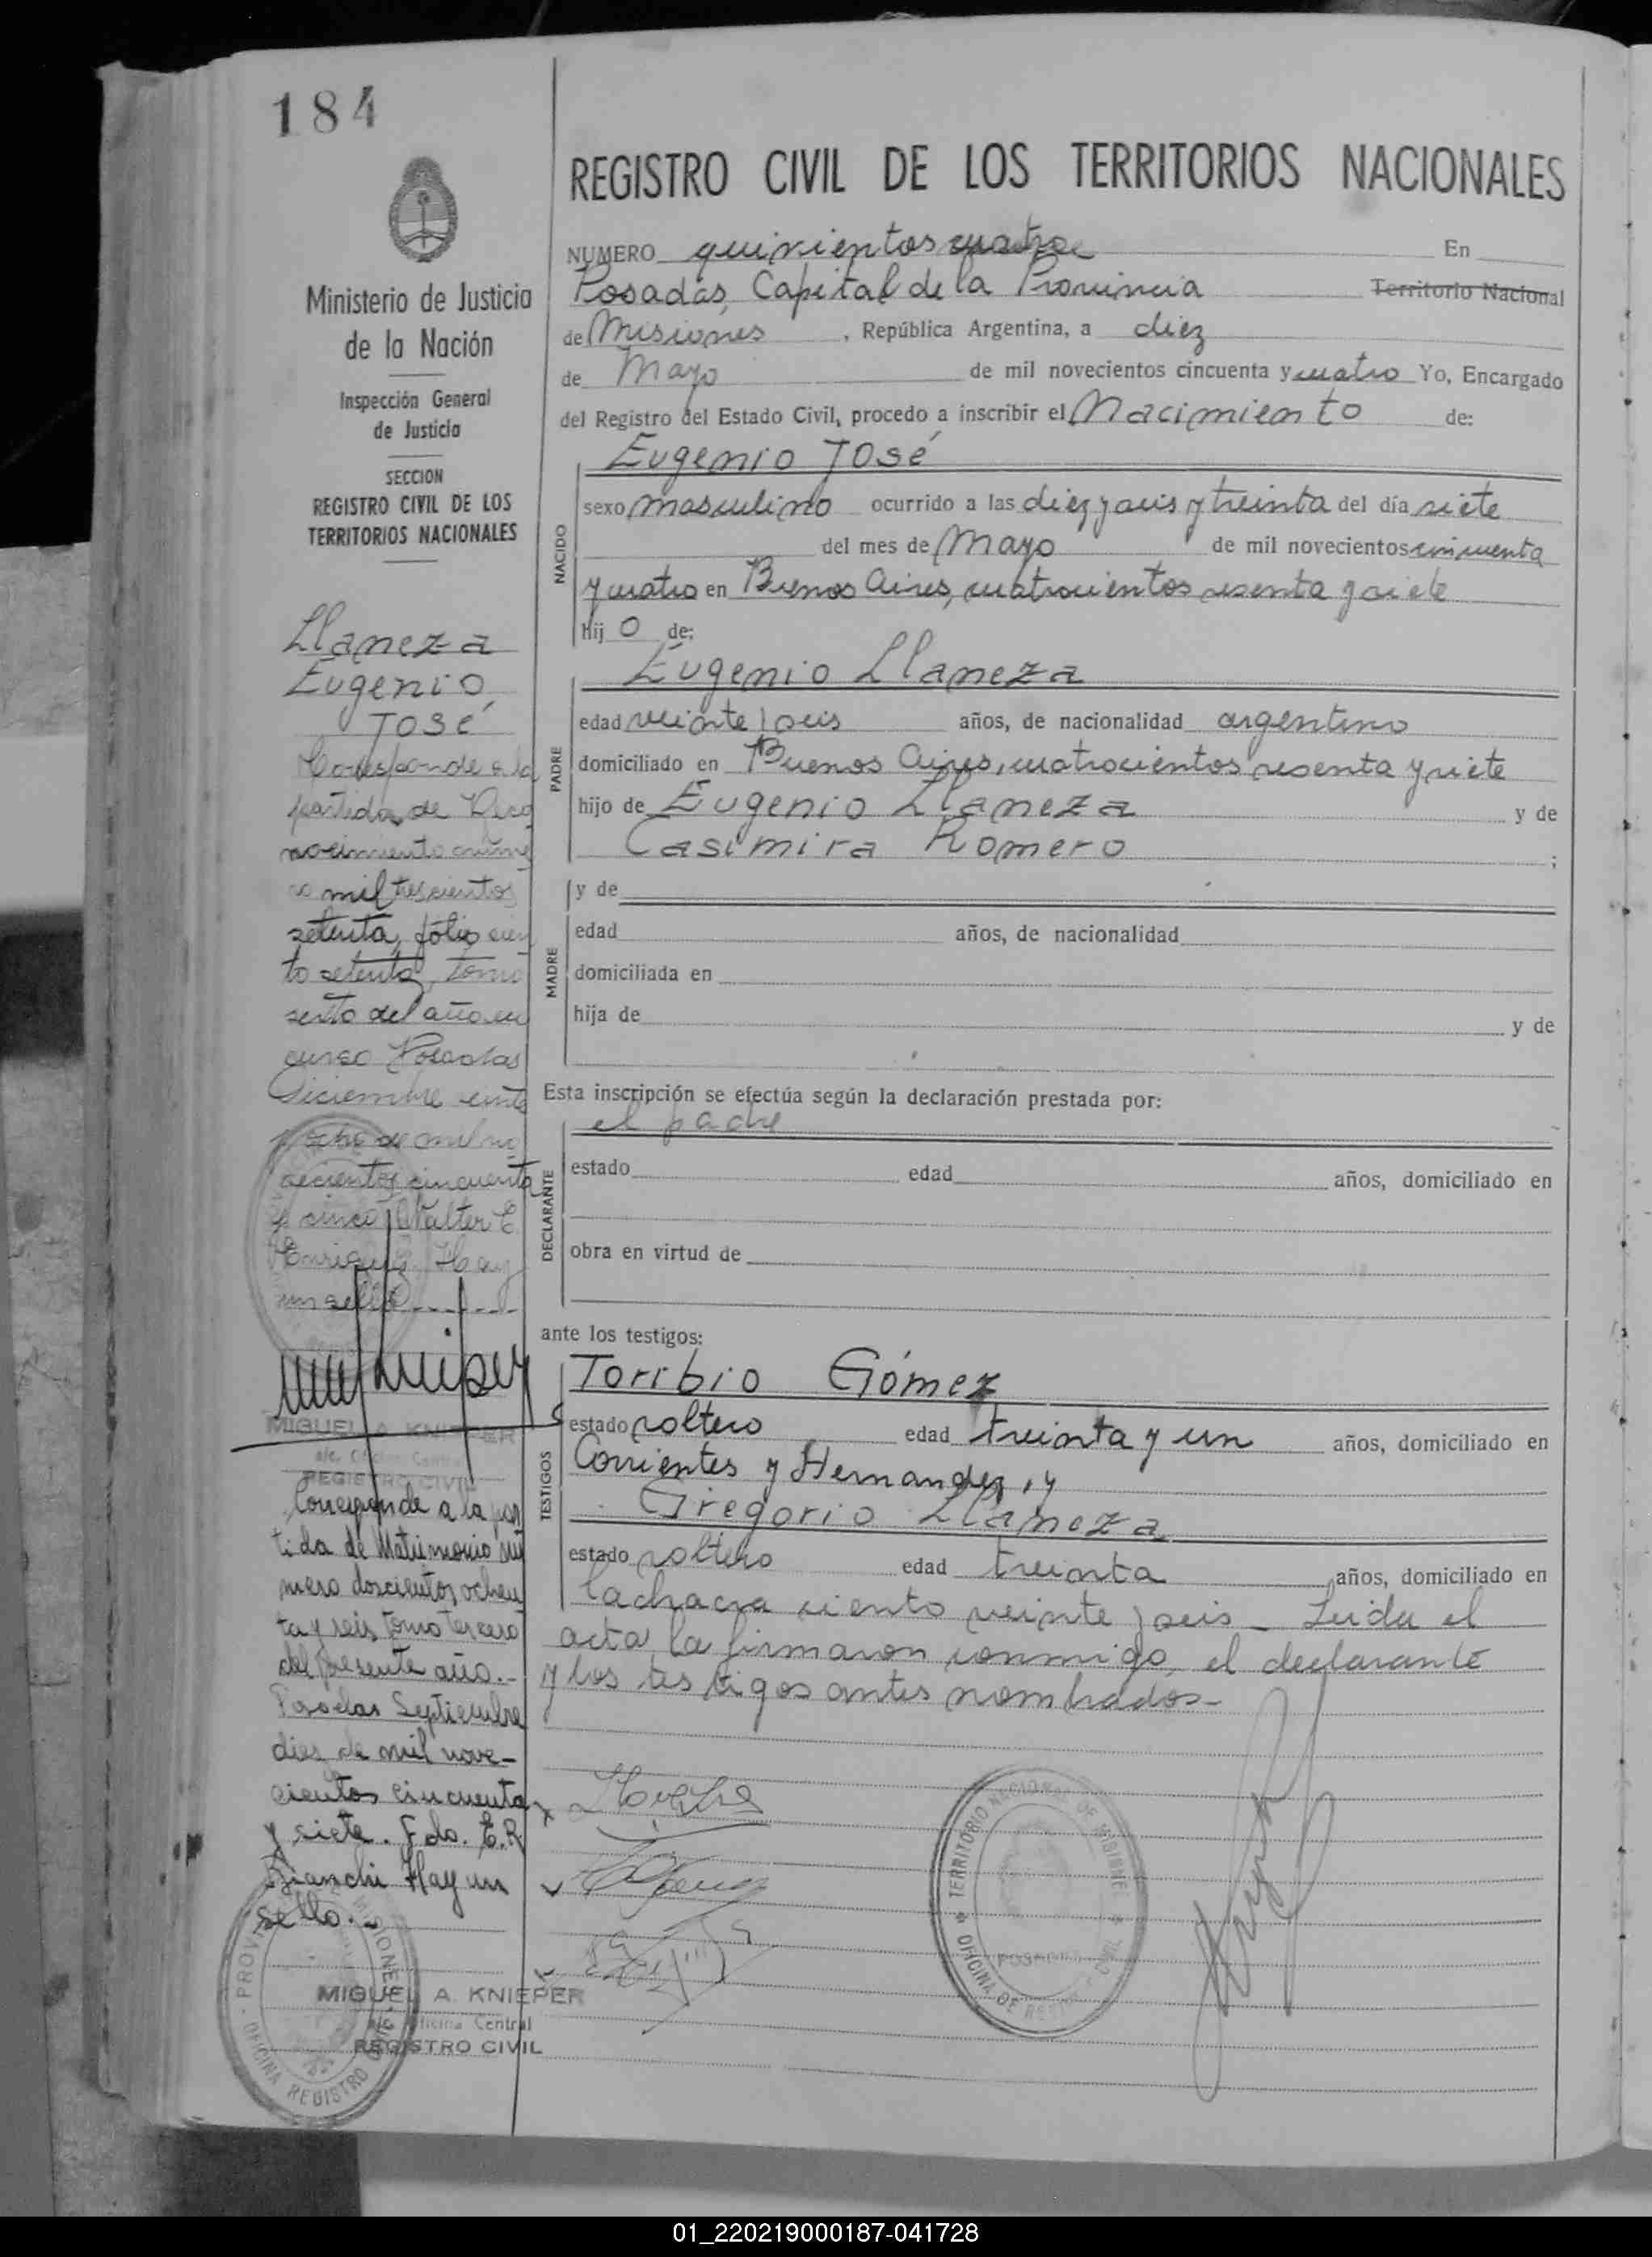 184
REGISTRO CIVIL DE LOS TERRITORIOS NACIONALES
NUMERO quinientos cuatro En
Posadas, Capital de la Provincia Territorio Nacional
de Misiones, República Argentina, a diez
de Mayo de mil novecientos cincuenta y cuatro Yo, Encargado
del Registro del Estado Civil, procedo a inscribir el Nacimiento de:
Ministerio de Justicia
de la Nación
Inspección General
de Justicia
SECCION
REGISTRO CIVIL DE LOS
TERRITORIOS NACIONALES
Llaneza
Eugenio
José
Corresponde a la
partida de Reco
nocimiento núme
ro mil trescientos
setenta, folio cien
to setenta, tomo
sexto del año en
curso Posadas
Diciembre veinte
y ocho de mil no
vecientos cincuenta
y cinco Walter E.
Enriquez. Hay
un sello
MIGUEL A. KNIEPER
Central
REGISTRO CIVIL
Corresponde a la par
tida de Matrimonio nú
mero doscientos ochen
ta y seis tomo tercero
del presente año.-
Posadas Septiembre
diez de mil nove-
cientos cincuenta
y siete. Fdo. E.R.
Bianchi Hay un
sello.-
PROVINCIA MISIONES
OFICINA REGISTRO CIVIL
MIGUEL A. KNIEPER
Oficina Central
REGISTRO CIVIL
NACIDO
Eugenio José
sexo masculino ocurrido a las diez y seis y treinta del día siete
del mes de Mayo de mil novecientos cincuenta
y cuatro en Buenos Aires, cuatrocientos sesenta y siete
hij o de:
PADRE
Eugenio Llaneza
edad veinte y seis años, de nacionalidad argentino
domiciliado en Buenos Aires, cuatrocientos sesenta y siete
hijo de Eugenio Llaneza y de
Casimira Romero ;
MADRE
y de
edad años, de nacionalidad
domiciliada en
hija de y de
Esta inscripción se efectúa según la declaración prestada por:
DECLARANTE
el padre
estado edad años, domiciliado en
obra en virtud de
ante los testigos:
TESTIGOS
Toribio Gómez
estado soltero edad treinta y un años, domiciliado en
Corrientes y Hernandez, y
Gregorio Llaneza
estado soltero edad treinta años, domiciliado en
la chacra ciento veinte y seis - Leida el
acta la firmaron conmigo, el declarante
y los testigos antes nombrados-
TERRITORIO NACIONAL DE MISIONES
OFICINA DE REGISTRO CIVIL
POSADAS
01_220219000187-041728